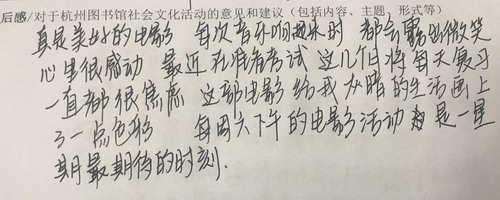 后感/对于杭州图书馆社会文化活动的意见和建议（包括内容、主题、形式等）
真是美好的电影 每次音乐响起来的时 都会露出微笑
心里很感动 最近在准备考试 这几个月将每天复习
一直都很焦虑 这部电影给我灰暗的生活画上
了一点色彩 每周六下午的电影活动是一星
期最期待的时刻.